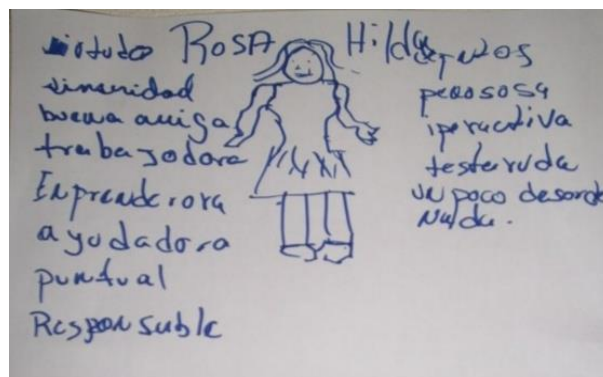 ROSA Hilda
sinseridad
buena amiga
trabajadora
Enprenderora
ayudadora
puntual
Responsable
peresosa
iperactiva
testeruda
un poco desorde
nada.